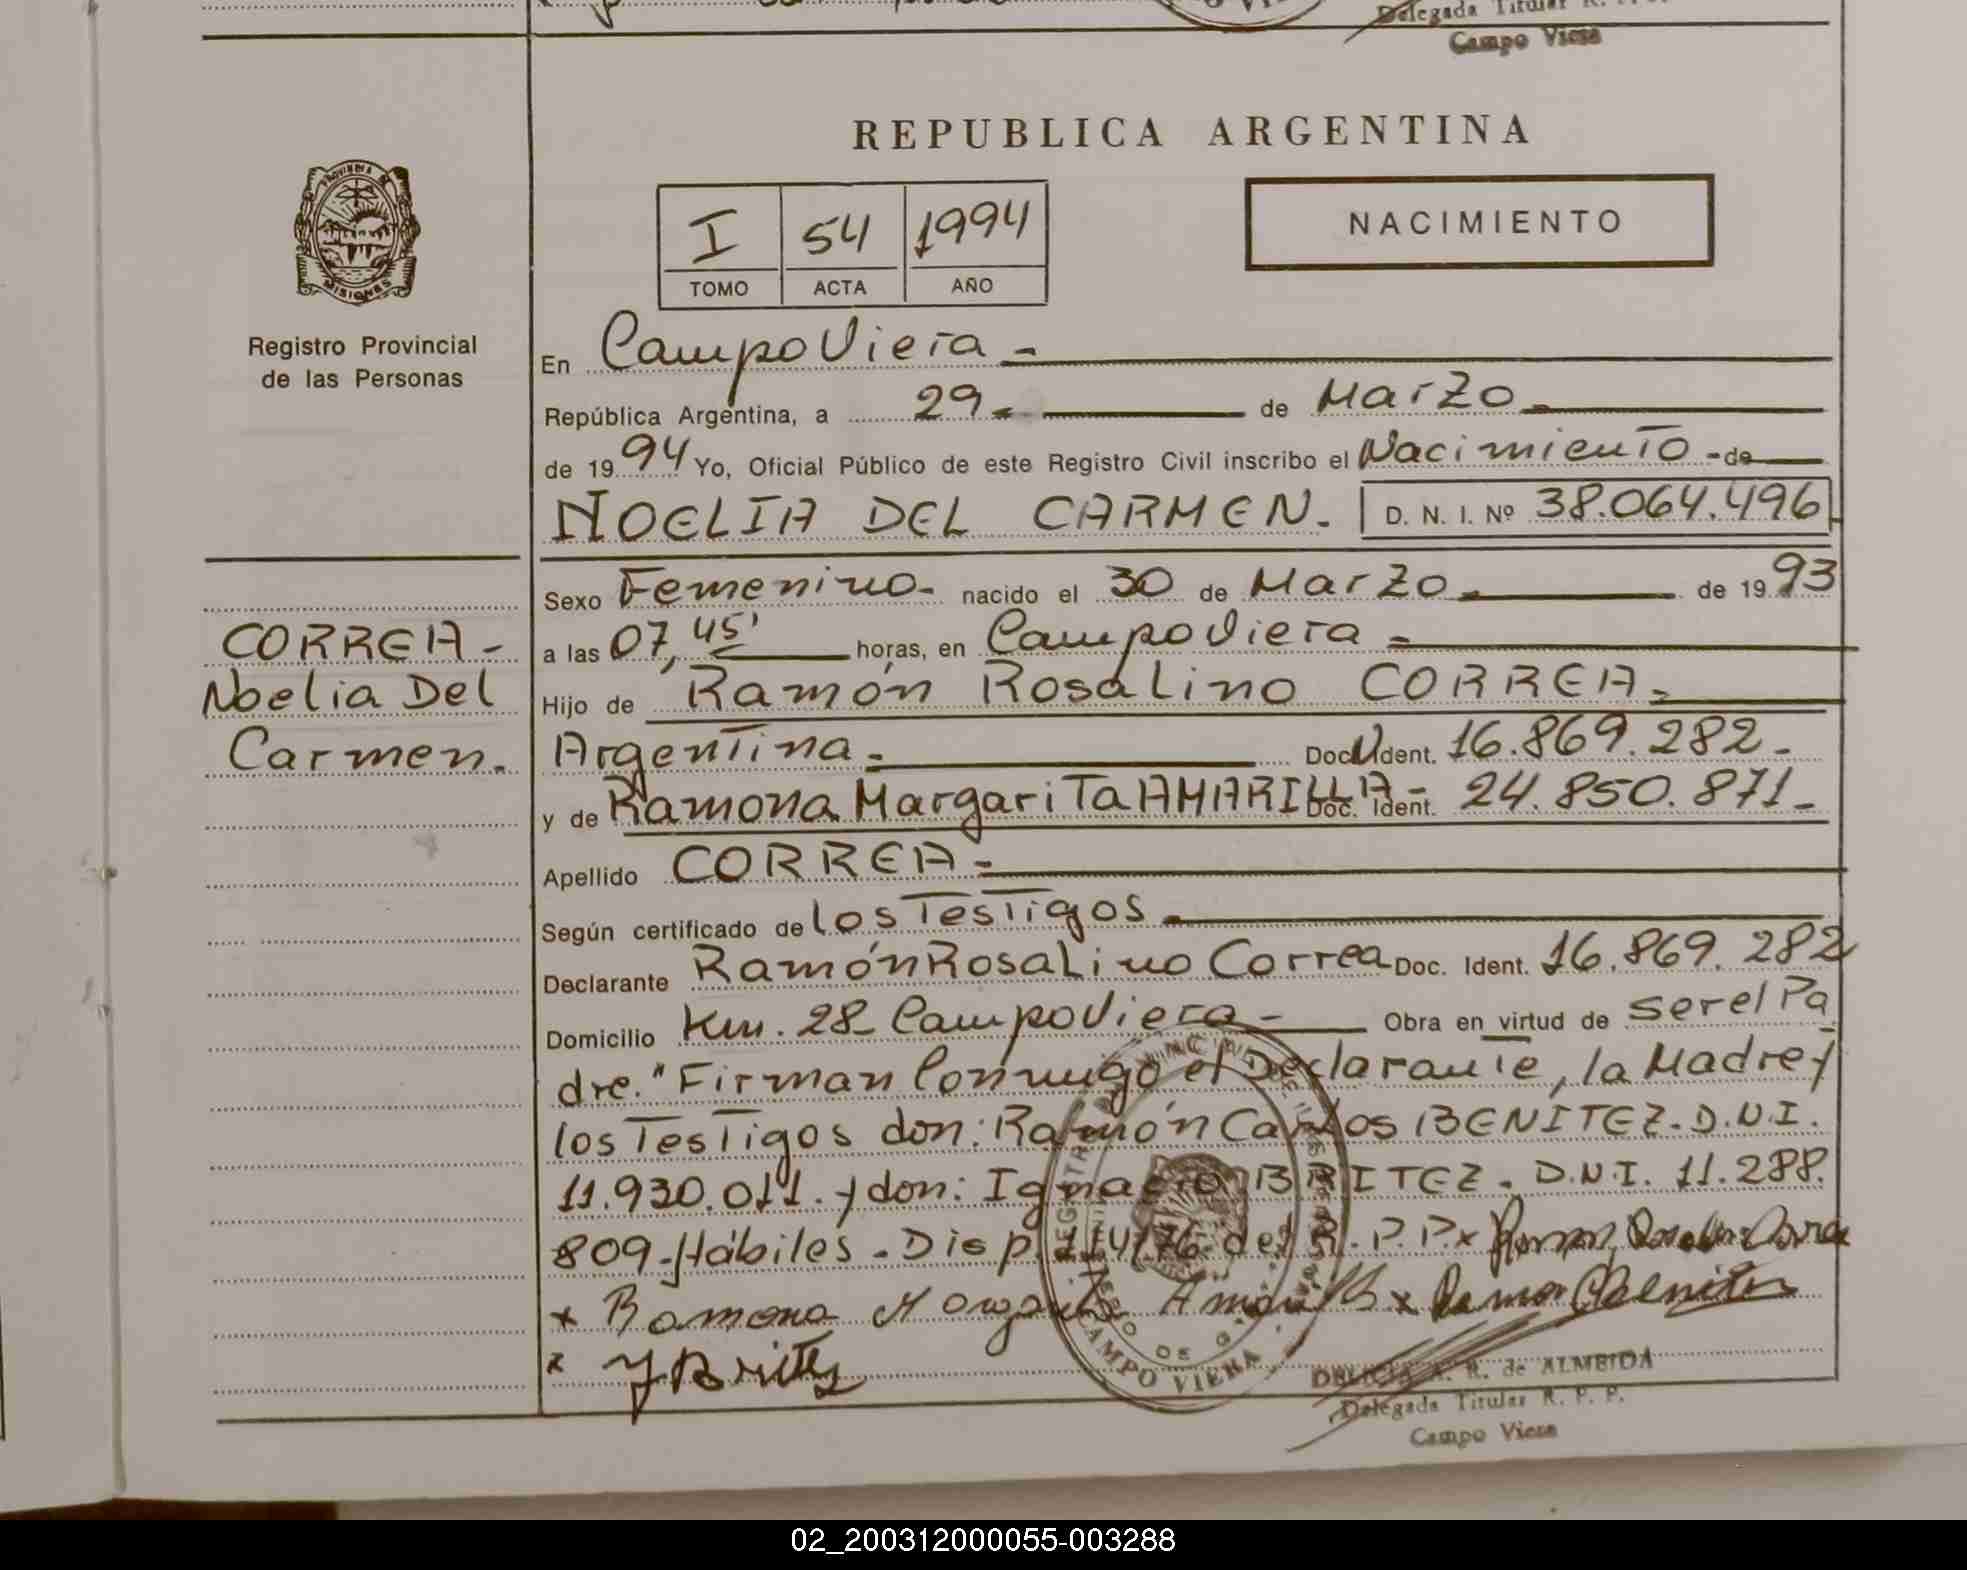 Delegada Titular R. P. P.
Campo Viera
REPUBLICA ARGENTINA
I 54 1994
TOMO ACTA AÑO
NACIMIENTO
MISIONES
Registro Provincial
de las Personas
En Campo Viera -
República Argentina, a 29 - de Marzo -
de 1994 Yo, Oficial Público de este Registro Civil inscribo el Nacimiento - de
NOELIA DEL CARMEN. D. N. I. Nº 38.064.496
Sexo Femenino - nacido el 30 de Marzo - de 1993
a las 07,45' horas, en Campo Viera -
Hijo de Ramón Rosalino CORREA -
Argentina - Doc. Ident. 16.869.282 -
y de Ramona Margarita AMARILLA - Doc. Ident. 24.850.871 -
Apellido CORREA -
Según certificado de los Testigos -
Declarante Ramón Rosalino Correa Doc. Ident. 16.869.282
Domicilio Km. 28 - Campo Viera - Obra en virtud de ser el Pa
dre." Firman Conmigo el Declarante, la Madre y
los Testigos don: Ramón Carlos BENITEZ - D.N.I.
11.930.011. y don: Ignacio BRITEZ. D.N.I. 11.288.
809 - Hábiles - Disp. 114/76 del R. P. P. x Ramon Rosalino Correa
x Ramona Margarita Amarilla x Ramon C Benitez
x I Britez
CORREA -
Noelia Del
Carmen.
CAMPO VIERA
DELICIA A. R. de ALMEIDA
Delegada Titular R. P. P.
Campo Viera
02_200312000055-003288